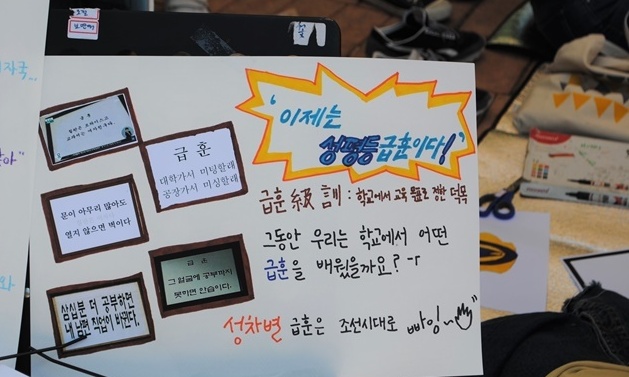 '이제는
성평등급훈이다!'
급훈 級訓 : 학교에서 교육 목표로 정한 덕목
그동안 우리는 학교에서 어떤
급훈을 배웠을까요?
성차별 급훈은 조선시대로 빠잉~
급훈
급훈
대학가서 미팅할래
공장가서 미싱할래
문이 아무리 많아도
열지 않으면 벽이다
급훈
그 얼굴에 공부까지
못하면 안습이다.
삼십분 더 공부하면
내 남편 직업이 바뀐다.